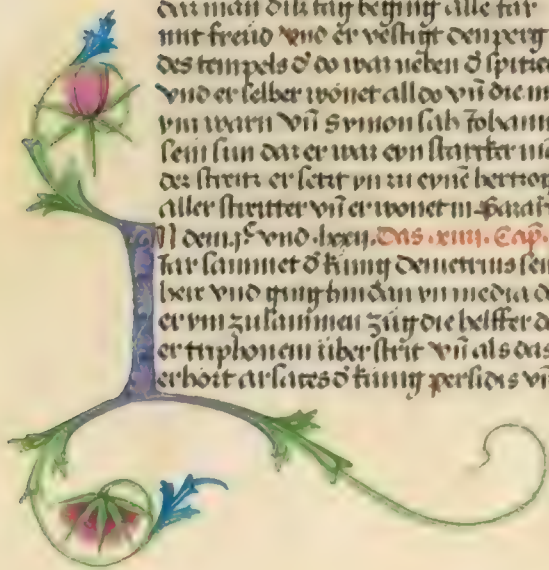 daz man disz tag beging alle iar
mit freud vnd er vestigt den perg
des tempels d͛ do waz neben d͛ spitzen
vnd er selber wonet alldo vn̄ die m
ym warn vn̄ Symon sah Johann
sein sun daz er waz eyn starcker ma
dez streitz er setzt yn zu eynē hertzog
aller streitter vn̄ er wonet in Gazar
IN dem .jͨ. vnd .lxxij. Das .xiiij. Cap̄.
iar sammet d͛ kunig Demetrius sein
heir vnd ging hindan yn media d
er ym zusammen züg die helffer d
er triphonem über strit vn̄ als das
erhort arsates d͛ kunig persidis vn̄